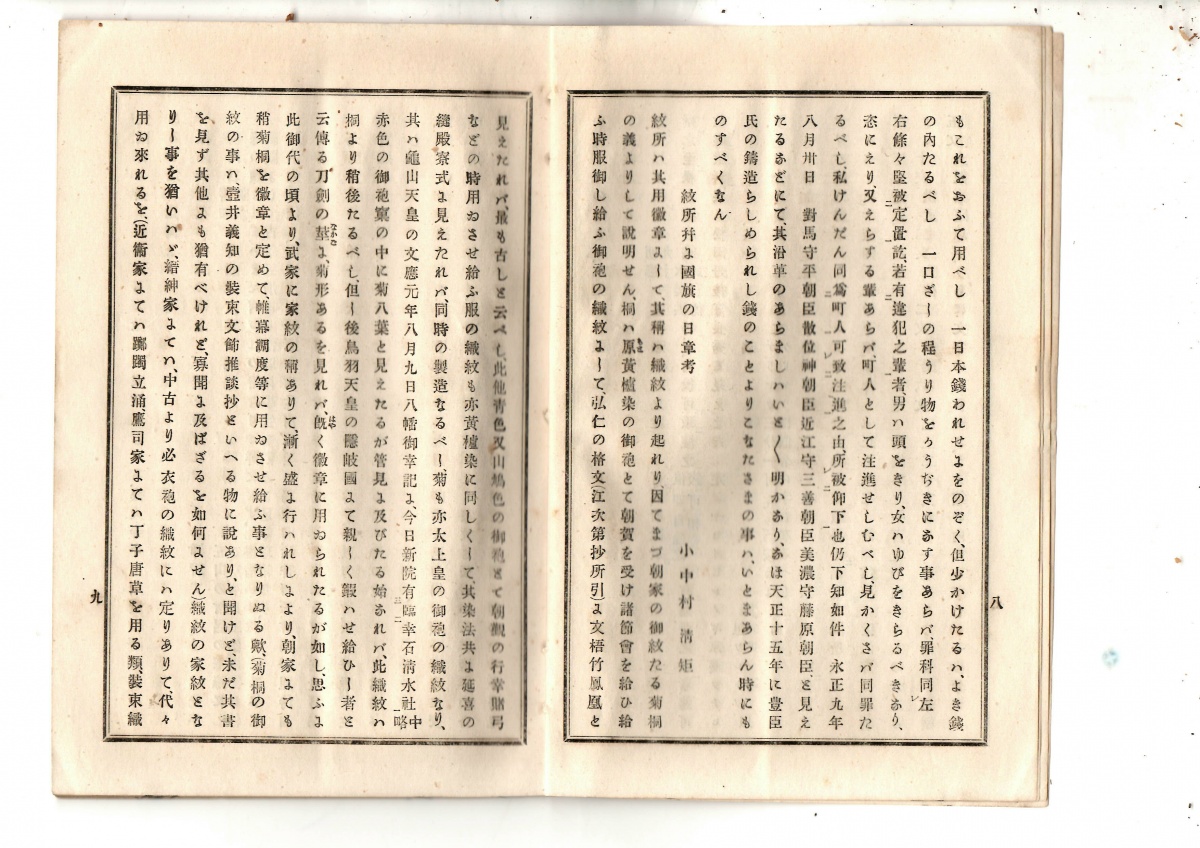 もこれをおふて用べし　一日本錢われせよをのぞく、但少かけたるハ、よき錢
の內たるべし　一口ざーの程うり物をゥうぢきにあす事あらバ、罪科同左
右條々堅被定置訖、若有違犯之輩者男ハ頭をきり、女ハゆびをきらるべきあり、
恣にえり、又えらずる輩あらバ町人として注進せしむべし、見かくさバ同罪た
るべし、私けんだん同爲町人可致注進之由、所被仰下也仍下知如件　永正九年
八月卅日　對馬守平朝臣散位神朝臣近江守三善朝臣美濃守藤原朝臣、と見え
たるあどにて、其沿革のあらましハいと〱明かあり、あほ天正十五年に豊臣
氏の鑄造らしめられし錢のことよりこなたさまの事ハ、いとまあらん時にも
のすべくなん
紋所幷よ國旗の日章考
小中村淸矩
紋所ハ其用徽章よーて、其稱ハ織紋より起れり、因てまづ朝家の御紋たる菊桐
の義よりして說明せん、桐ハ原黃櫨染の御砲とて朝賀を受け諸節會を給ひ給
ふ時服御し給ふ御砲の織紋よーて、弘仁の格文(江次第抄所引)よ文梧竹鳳凰と
八
見えたれバ、最も古しと云べし、此他靑色又山鳩色の御砲とて朝覲の行幸賭弓
などの時用ゐさせ給ふ服の織紋も亦黃櫨染に同しくーて、其染法共よ延喜の
縫殿寮式よ見えたれバ、同時の製造なるべー、菊も亦太上皇の御砲の織紋なり、
其ハ龜山天皇の文應元年八月九日八幡御幸記よ、今日新院有臨幸石淸水社中略
赤色の御砲窠の中に菊八葉と見えたるが管見よ及びたる始あれバ、此織紋ハ
桐より稍後たるべし、但ー後鳥羽天皇の隱岐國よて親ーく鍛ハせ給ひー者と
云傳る刀劍の莖よ、菊形あるを見れバ、旣く徽章に用ゐられたるが如し、思ふよ
此御代の頃より、武家に家紋の稱ありて、漸く盛よ行ハれしよより、朝家よても
稍菊桐を徽章と定めて、帷幕調度等に用ゐさせ給ふ事となりぬる歟、(菊桐の御
紋の事ハ壺井義知の裝束文飾推談抄といへる物に說あり、と聞けど、未だ其書
を見ず其他よも猶有べけれど、寡聞よ及ばざるを如何よせん)織紋の家紋とな
りー事を猶いハゞ、縉紳家よてハ、中古より必衣砲の織紋にハ定りありて、代々
用ゐ來れるを、(近衞家よてハ躑躅立涌、鷹司家よてハ丁子唐草を用る類、裝束織
九